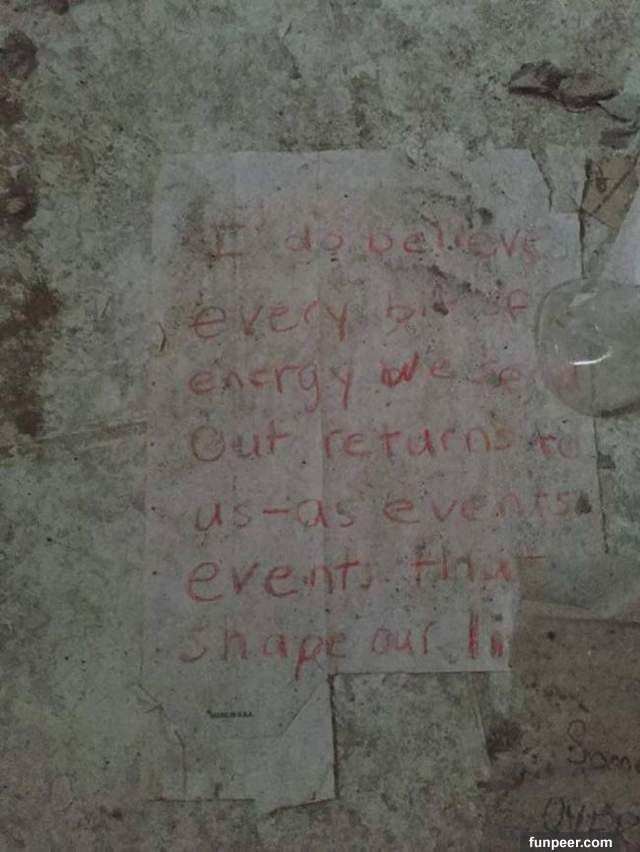 I do believe
every bit of
energy we send
out returns to
us-as events
events that
shape our li
Some
funpeer.com